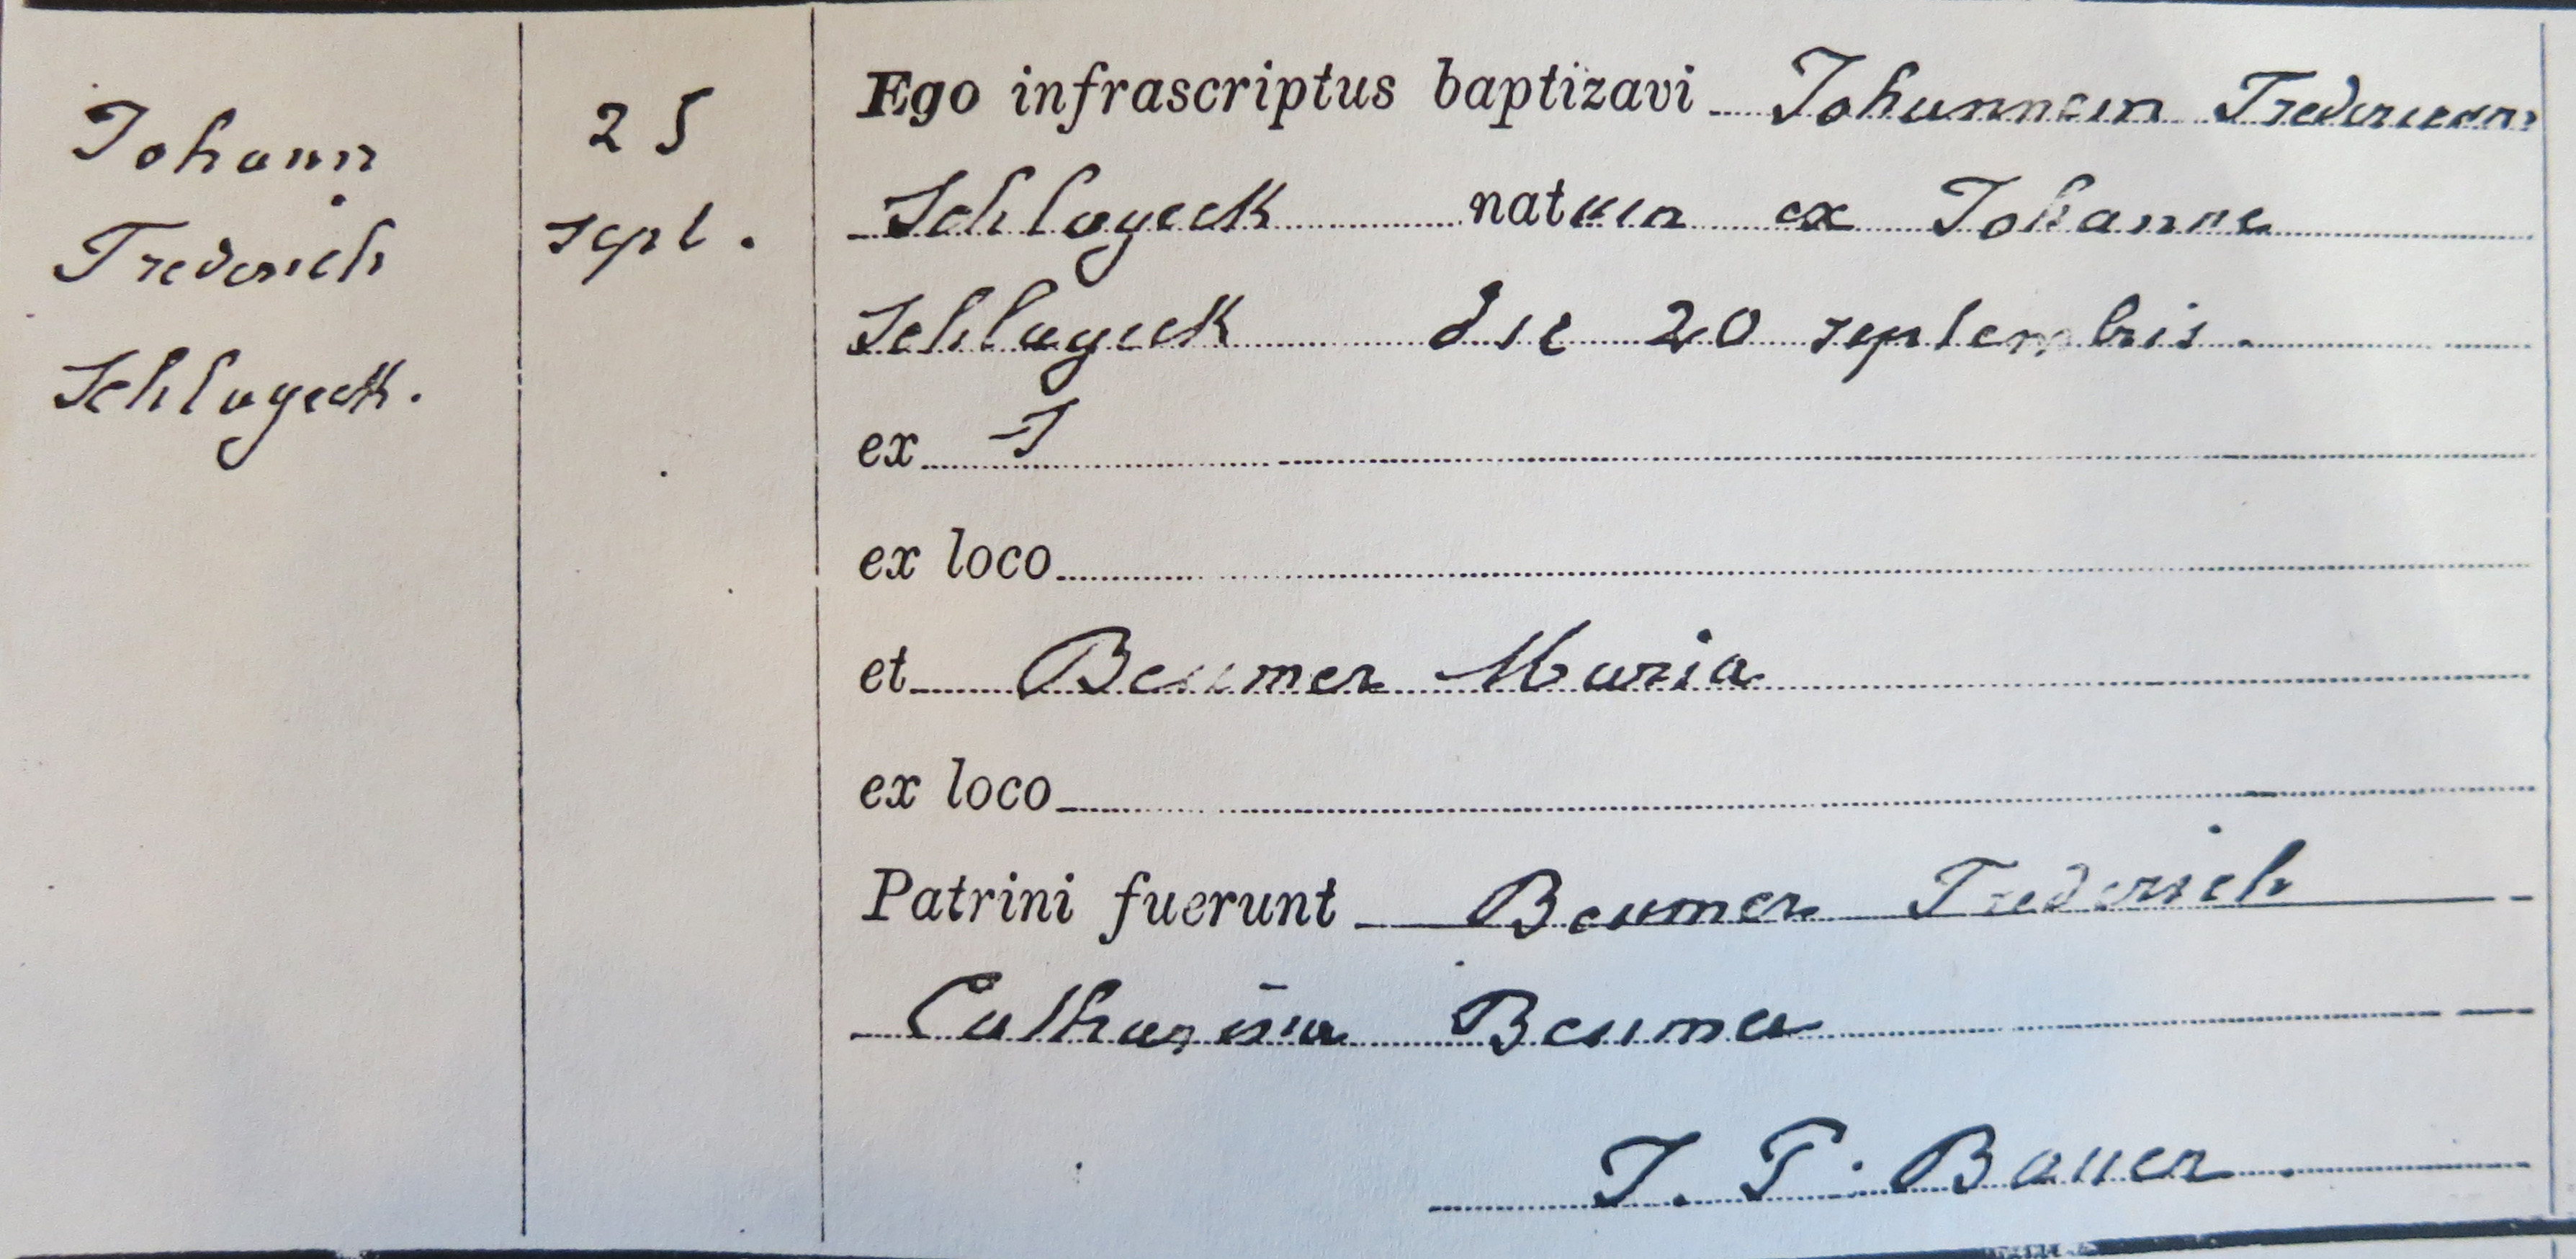 Johann
Frederich
Schlageck.
25
sept.
Ego infrascriptus baptizavi Johannem Fredericum
Schlageck natum ex Johanne
Schlageck die 20 septembris.
ex
ex loco
et Beumer Maria
ex loco
Patrini fuerunt Beumer Frederich
Catharina Beumer
J. F. Bauer